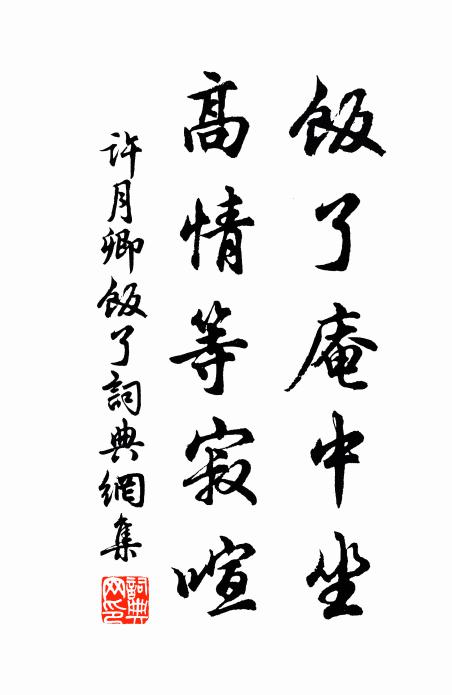 飯了庵中坐
高情等寂喧
許月卿飯了詞典網集
詞典網印